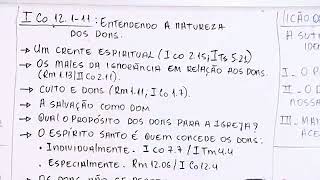 I Co 12.1-11: Entendendo a natureza
dos dons:
→ Um crente espiritual (I Co 2.15; I Ts 5.21)
→ Os males da ignorância em relação aos dons.
(Rm 1.13/II Co 2.11)
→ Culto e dons (Rm 1.11, I Co 1.7).
→ A salvação como dom
→ Qual o propósito dos dons para a igreja?
→ O Espírito Santo é quem concede os dons:
• Individualmente. I Co 7.7 / I Tm 4.4
• Especialmente. Rm 12.06 / I Co 12.4
→ Os dons não se
LIÇÃO
A SUT
IDEN
I_ O P
NOSSA
III_ MA
ACES